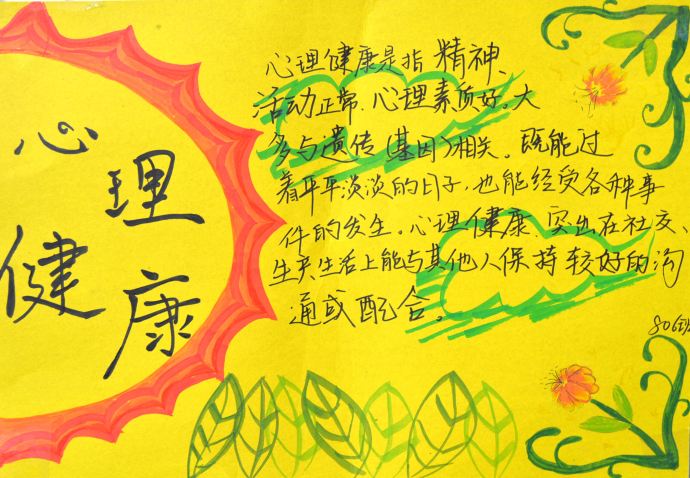 心理
健康
心理健康是指精神、
活动正常、心理素质好。大
多与遗传(基因)相关。既能过
着平平淡淡的日子,也能经受各种事
件的发生。心理健康突出在社交、
生产、生活上能与其他人保持较好的沟
通或配合。
806班